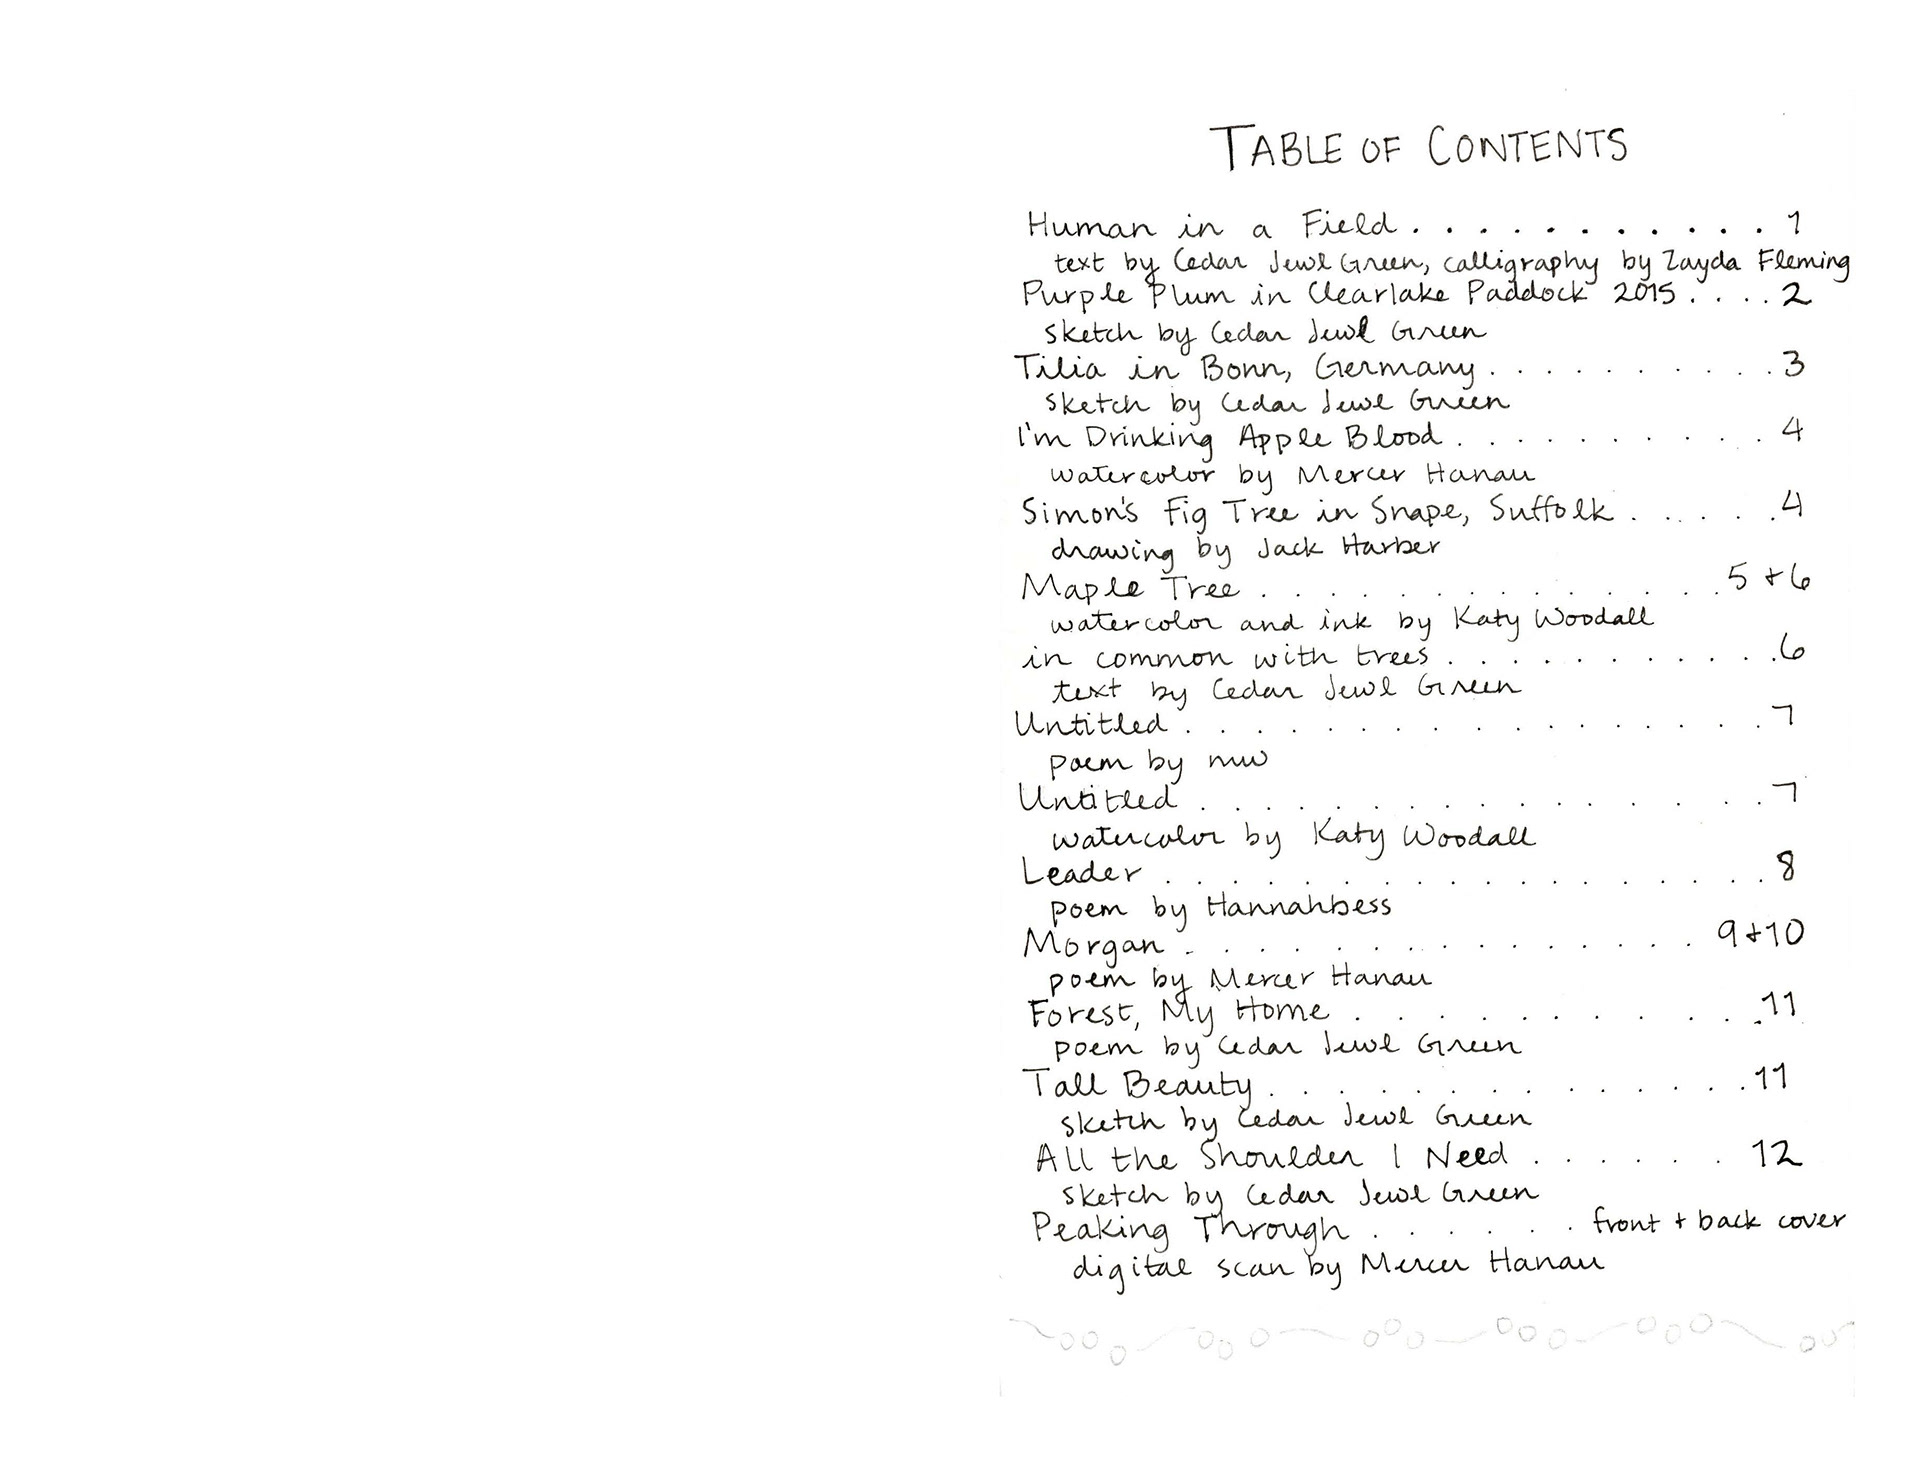 TABLE OF CONTENTS
Human in a Field . . . . . . . . . . . . 1
text by Cedar Jewl Green, calligraphy by Zayda Fleming
Purple Plum in Clearlake Paddock 2015 . . . . 2
sketch by Cedar Jewl Green
Tilia in Bonn, Germany . . . . . . . . . . 3
sketch by Cedar Jewl Green
I'm Drinking Apple Blood . . . . . . . . . . 4
watercolor by Mercer Hanau
Simon's Fig Tree in Snape, Suffolk . . . . . 4
drawing by Jack Harber
Maple Tree . . . . . . . . . . . . . . 5 + 6
watercolor and ink by Katy Woodall
in common with trees . . . . . . . . . . . 6
text by Cedar Jewl Green
Untitled . . . . . . . . . . . . . . . . . 7
poem by nw
Untitled . . . . . . . . . . . . . . . . 7
watercolor by Katy Woodall
Leader . . . . . . . . . . . . . . . . . 8
poem by Hannahbess
Morgan . . . . . . . . . . . . . . . 9 + 10
poem by Mercer Hanau
Forest, My Home . . . . . . . . . . 11
poem by Cedar Jewl Green
Tall Beauty . . . . . . . . . . . . . 11
sketch by Cedar Jewl Green
All the Shoulder I Need . . . . . . 12
sketch by Cedar Jewl Green
Peaking Through . . . . . . front + back cover
digital scan by Mercer Hanau